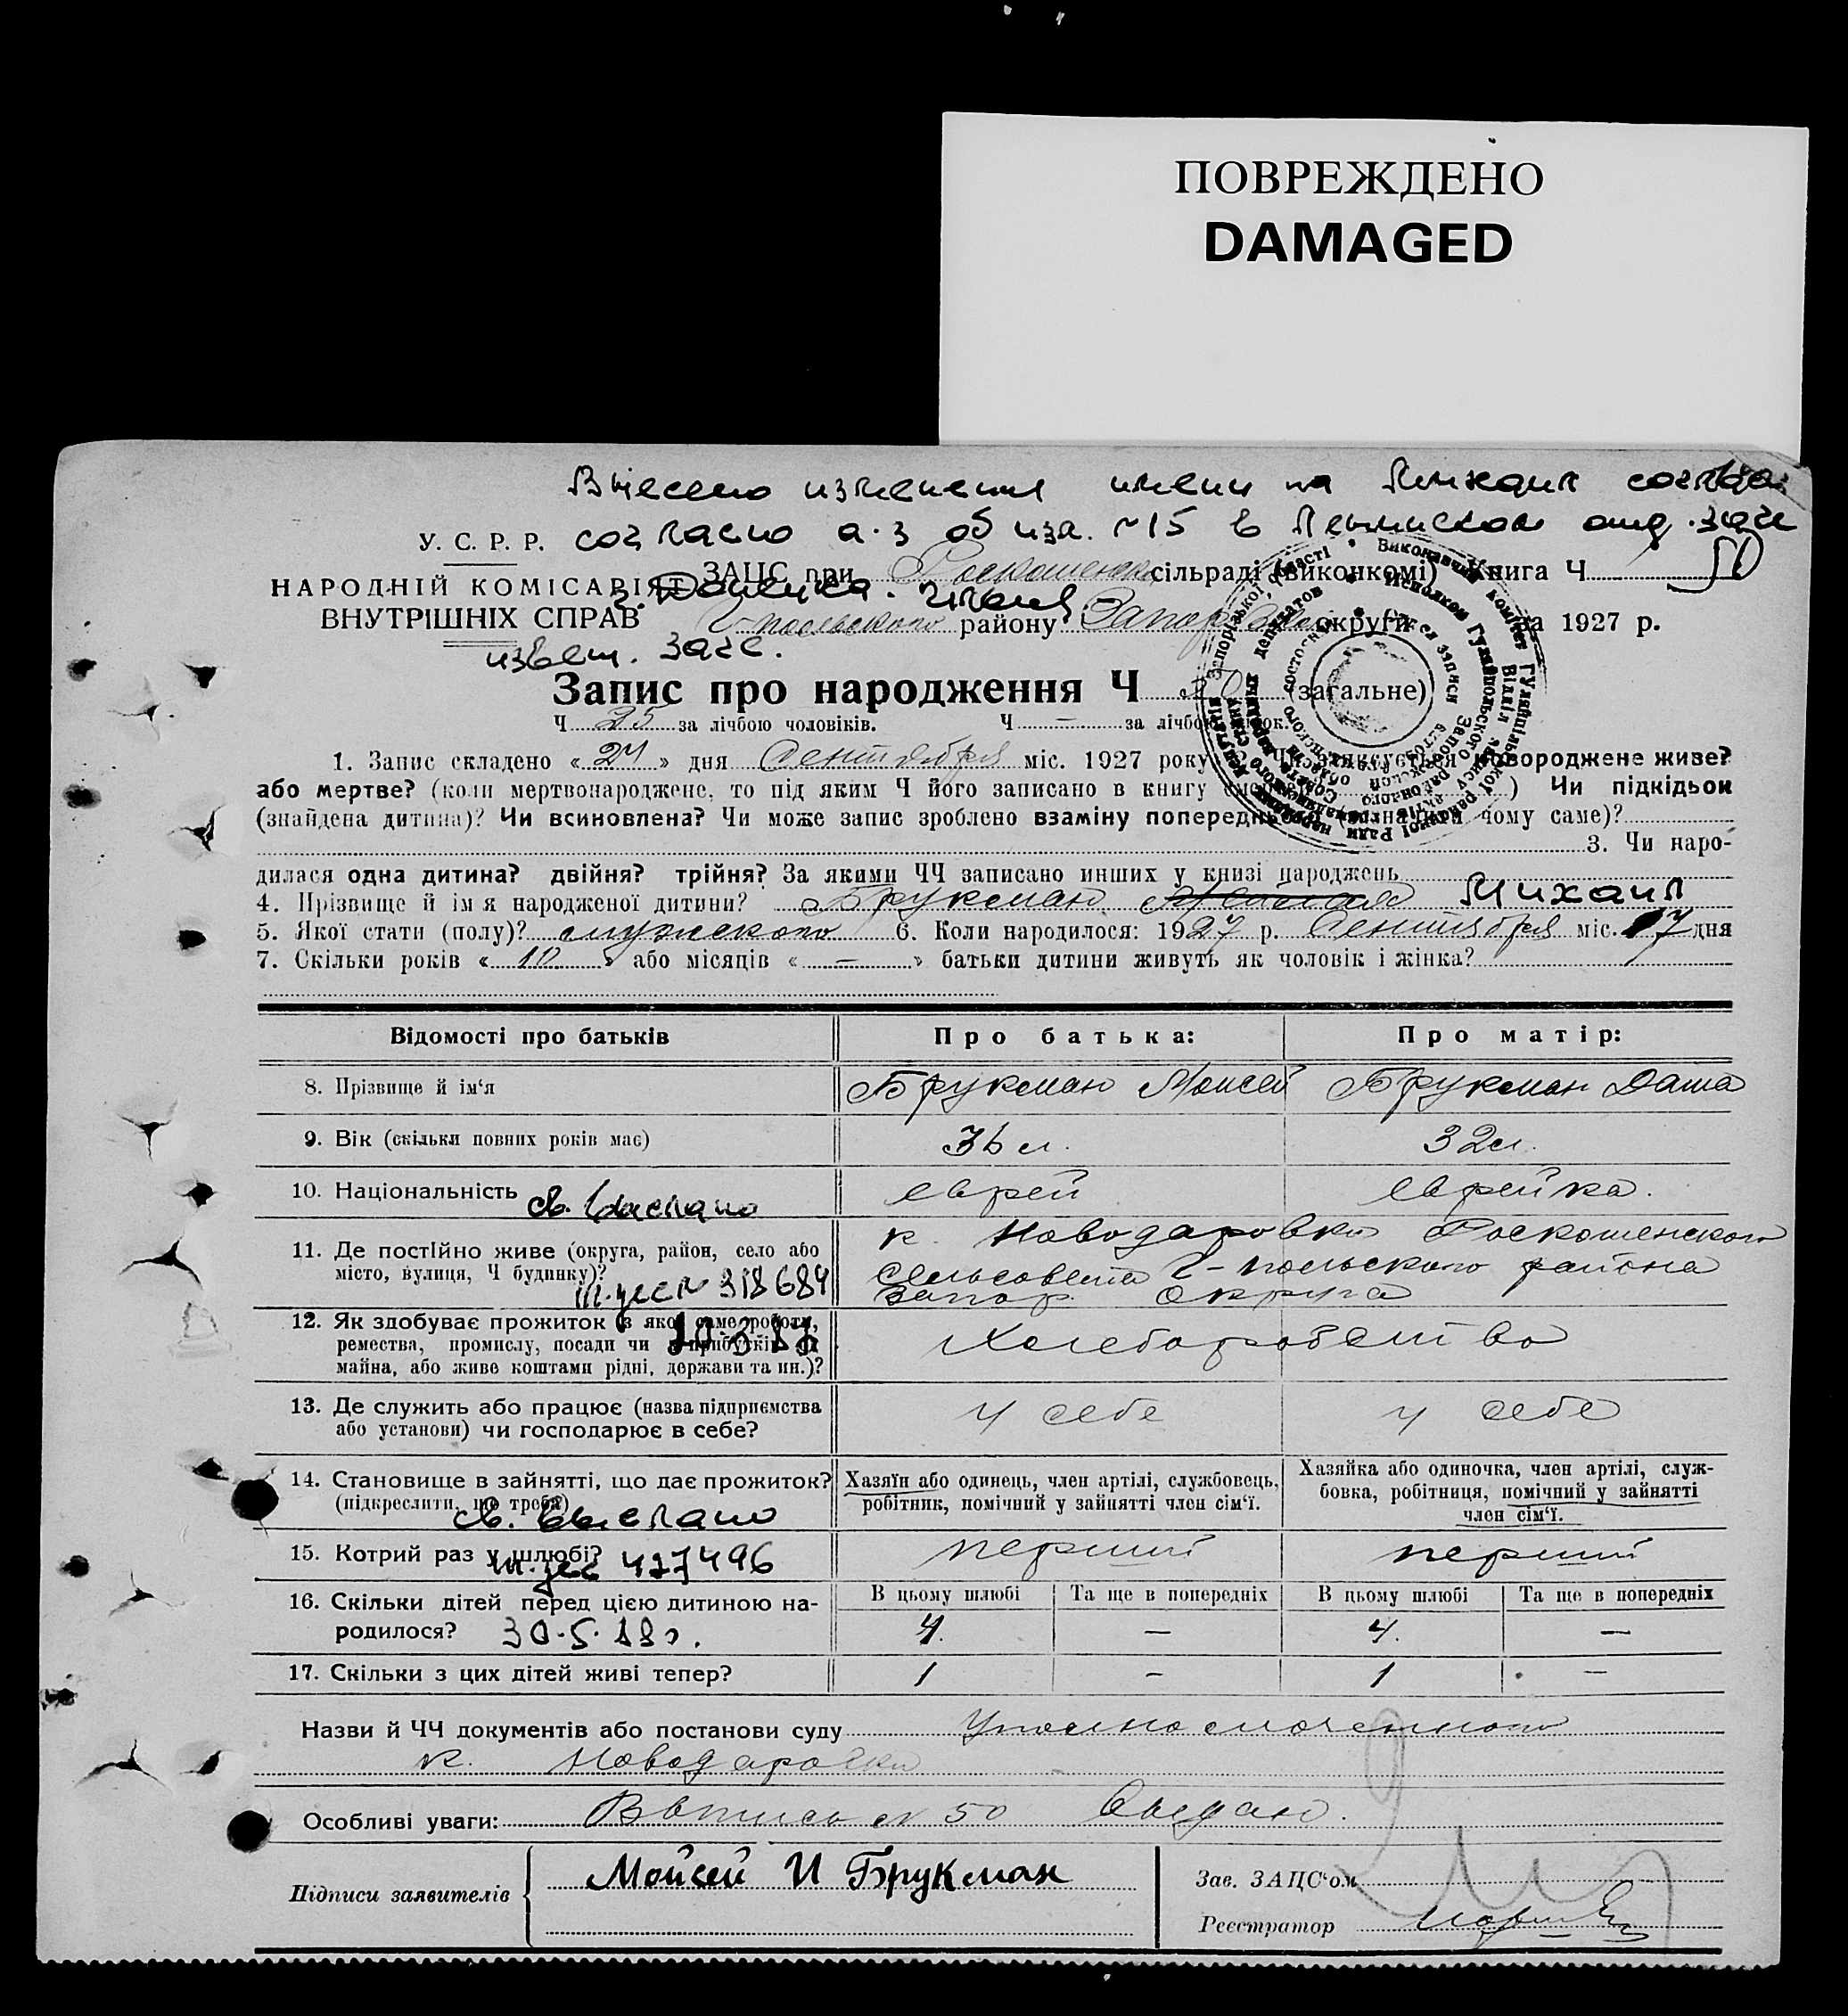 ПОВРЕЖДЕНО
DAMAGED
Внесено изменения имени на Михаил
согласно а.з об изм. №15 в Ленинском отд. загс
г. Донецка.
извещ. загс.
У. С. Р. Р.
НАРОДНІЙ КОМІСАРІЯТ
ВНУТРІШНІХ СПРАВ
ЗАЦС при Роскошенск сільраді (виконкомі) Книга Ч
Г-польского району Запор округи на 1927 р.
Запис про народження Ч 50 (загальне)
Ч 25 за лічбою чоловіків. Ч — за лічбою жінок.
1. Запис складено « 24 » дня Сентября міс. 1927 року Чи записується новороджене живе?
або мертве? (коли мертвонароджене, то під яким Ч його записано в книгу ) Чи підкідьок
(знайдена дитина)? Чи всиновлена? Чи може запис зроблено взаміну попереднього чому саме)?
3. Чи наро-
дилася одна дитина? двійня? трійня? За якими ЧЧ записано инших у книзі народжень
4. Прізвище й ім я народженої дитини? Брукман Михаил
5. Якої стати (полу)? мужского 6. Коли народилося: 1927 р. Сентября міс. 17 дня
7. Скільки років « 10 » або місяців « — » батьки дитини живуть як чоловік і жінка?
Відомості про батьків Про батька: Про матір:
8. Прізвище й ім‘я Брукман Моисей Брукман Даша
9. Вік (скільки повних років має) 36 л. 32 л.
10. Національність еврей еврейка.
св. выслано
11. Де постійно живе (округа, район, село або місто, вулиця, Ч будинку)? к. Новодаровки Роскошенского
сельсовета Г-польского района
Запор. округа
№ 318684
12. Як здобуває прожиток (з якої саме роботи, ремества, промислу, посади чи прибутків майна, або живе коштами рідні, держави та ин.)? Хлеборобство
13. Де служить або працює (назва підприємства або установи) чи господарює в себе? у себе у себе
14. Становище в зайнятті, що дає прожиток? (підкреслити, що треба)
Хазяїн або одинець, член артілі, службовець, робітник, помічний у зайнятті член сім‘ї.
Хазяйка або одиночка, член артілі, служ-бовка, робітниця, помічний у зайнятті член сім‘ї.
св. выслано
15. Котрий раз у шлюбі? перший перший
427496
16. Скільки дітей перед цією дитиною на-родилося?
В цьому шлюбі Та ще в попередніх В цьому шлюбі Та ще в попередніх
4. — 4. —
30.5.88г.
17. Скільки з цих дітей живі тепер? 1 - 1 —
Назви й ЧЧ документів або постанови суду Уполномоченного
к. Новодаровки
Особливі уваги: Выпись № 50 выдано.
Підписи заявителів Мойсей И Брукман
Зав. ЗАЦС‘ом
Реєстратор